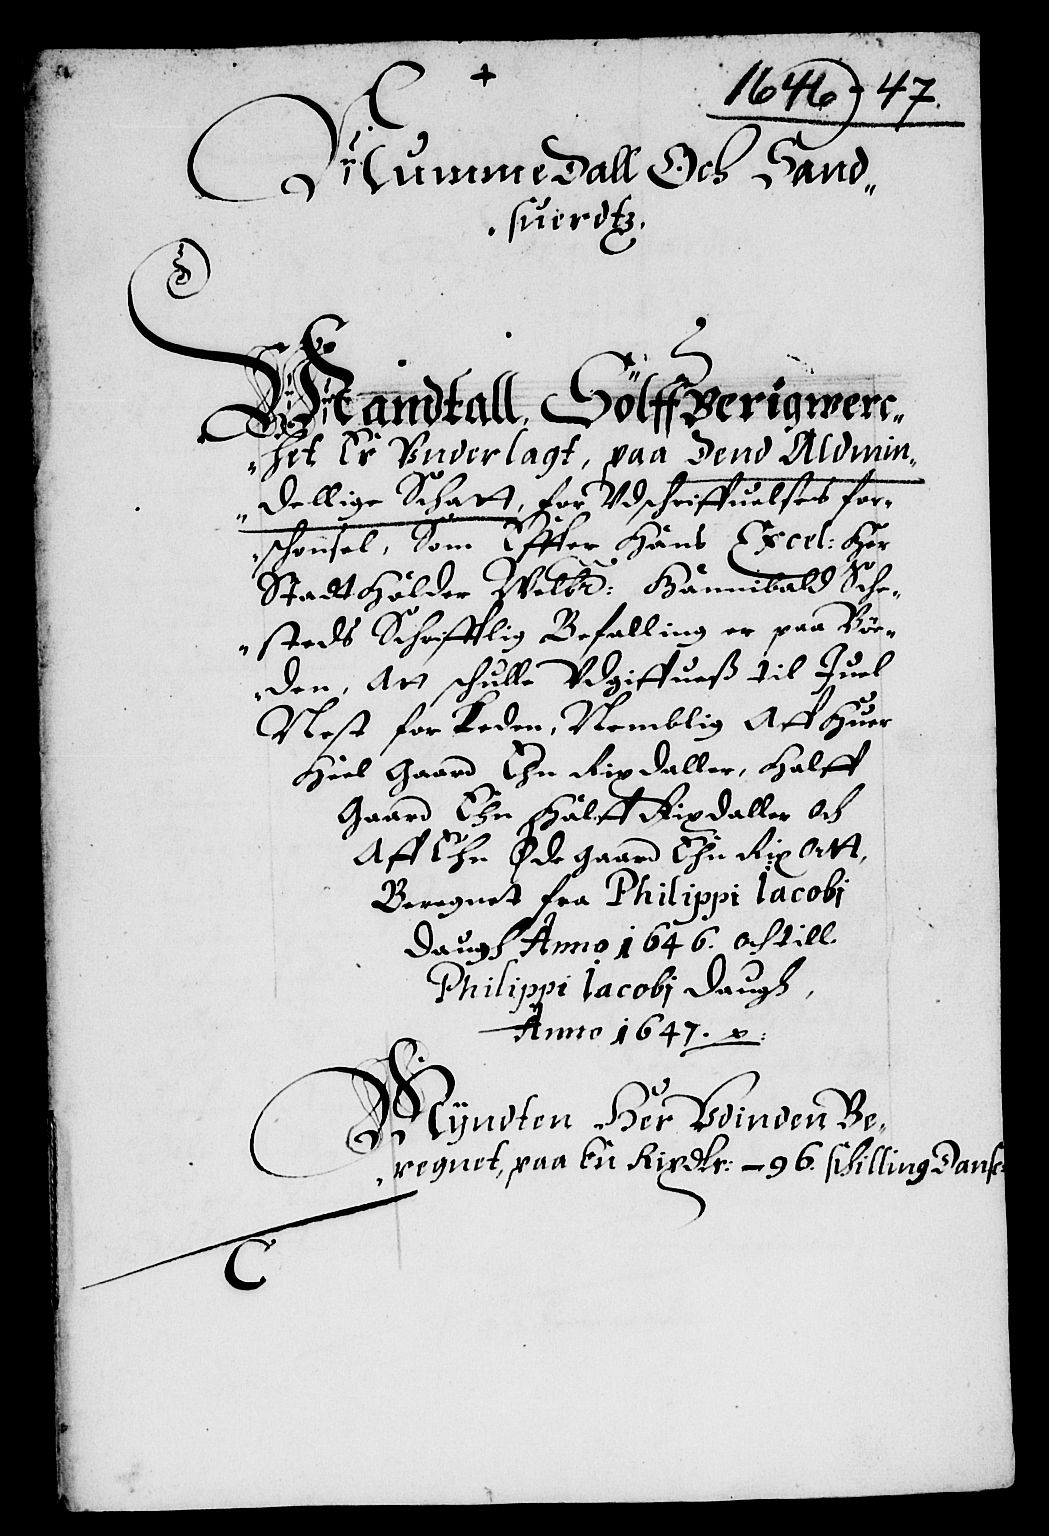 1646 - 47.
Nummedall Och Sand„
suerdtz.
Mandtall, Sölff Berigwerc„
„het Er Vnderlagt, paa Dend Aldmin„
„dellige Schatt, for Vdschriffuelses for„
„schonsel, Som Effter Hans Excel: Her
Stadtholder Welb: Hannibald Sche„
„steds Schrifftlig Befalling er paa Bör„
„den, Att schulle Vdgiffueß til Juel
Nest forleden, Nemblig Aff Huer
Heel Gaard Ehn Rixdaller, Halff
Gaard Ehn Halff Rixdaller och
Aff Ehn Øde gaard Ehn Rix Ortt,
Beregnet fra Philippi Iacobj
Daugh Anno 1646. och till
Philippi Iacobj Daugh,
Anno 1647.
Myndten Her Vdinden Be„
„regnet, paa En Rixdlr: – 96. schilling Dansch